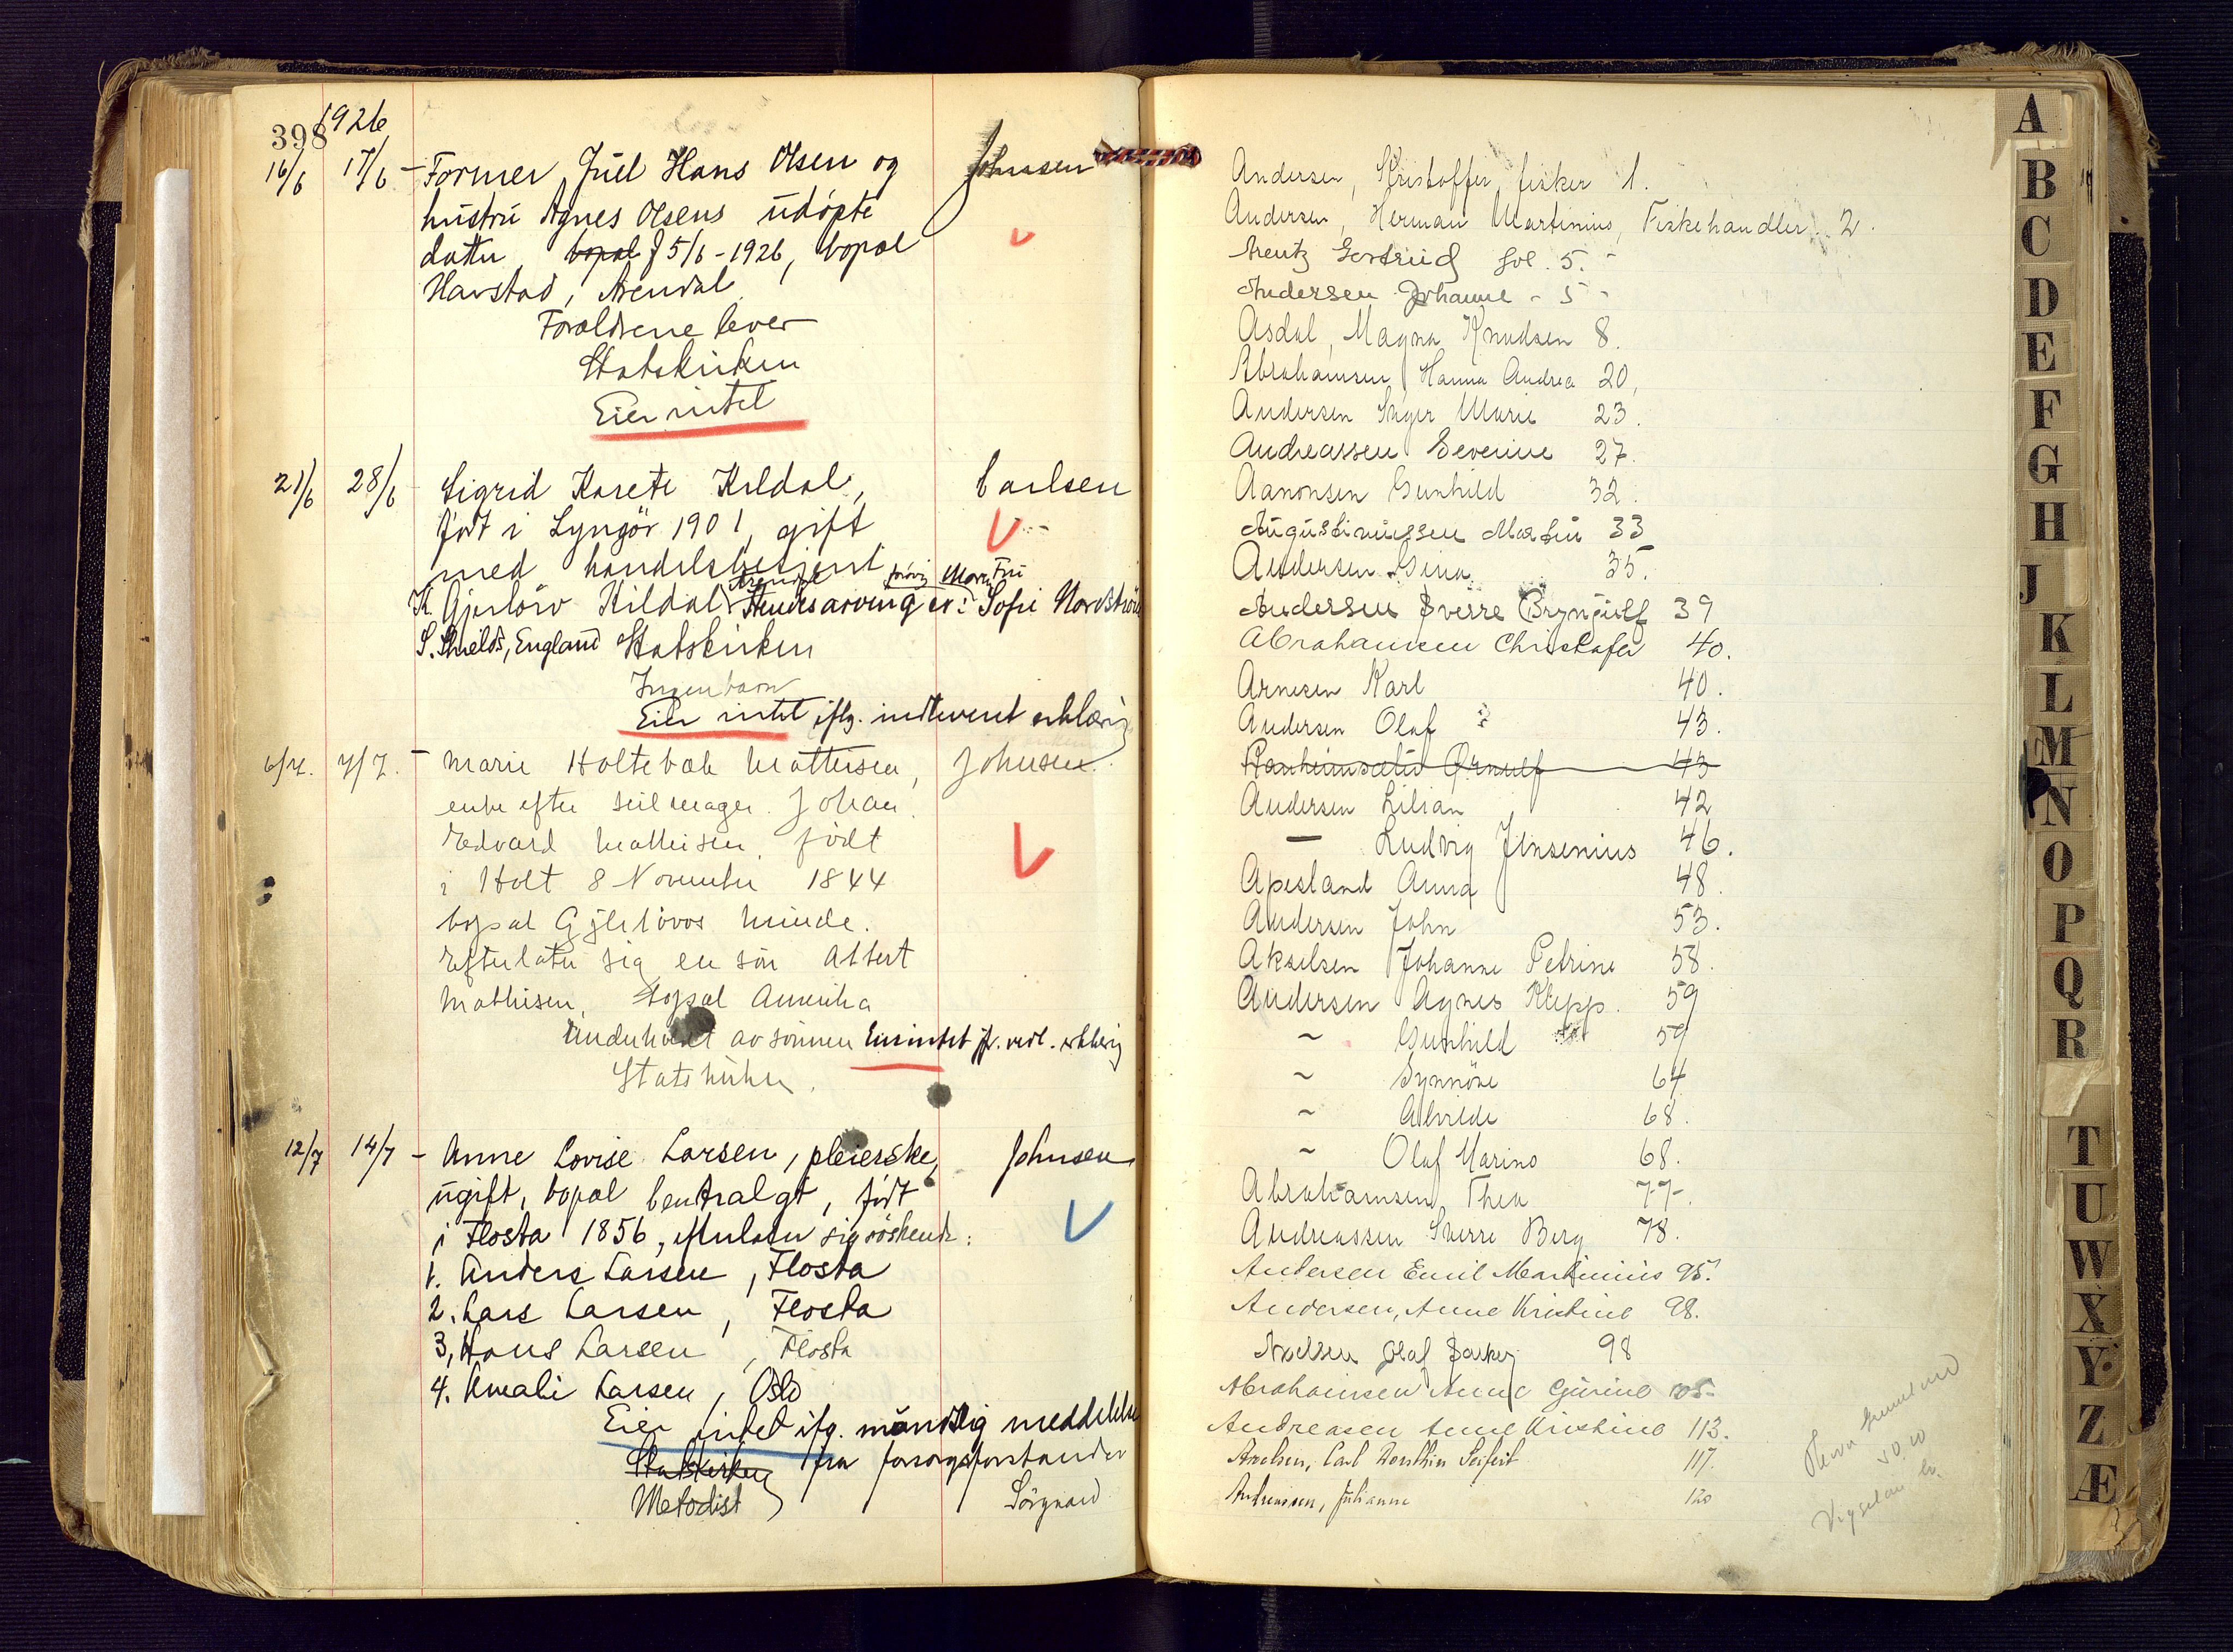 398 1926
16/6 17/6 - Former Juel Hans Olsen og Johnsen
hustru Agnes Olsens udøpte
datter, bopæl f 5/6 - 1926, bopæl
Havstad, Arendal
Forældrene lever
Statskirken
Eier intet
21/6 28/6 - Sigrid Karete Kildal, Carlsen
født i Lyngör 1901, gift
med handelsbetjent
Arendal Fru
K. Gjerlöw Kildal Hendes arving er: Sofie Nordström
S. Shields, England Statskirken
Ingen barn
Eier intet iflg. indleveret erklæring
6/7. 7/7. - Marie Holtebæk Mathisen, Johnsen.
enke efter seilmager Johan
Edvard Mathisen, født
i Holt 8 November 1844
bopæl Gjerløvs Minde.
Efterlater sig en sön Albert
Mathisen, bopæl Amerika
Underholdt av sönnen Eier intet jfr. vedl. erklæring
Statskirken.
12/7 14/7 - Anne Lovise Larsen, pleierske, Johnsen
ugift, bopæl Centralgt, født
i Flosta 1856, efterlater sig söskende:
1. Anders Larsen, Flosta
2. Lars Larsen, Flosta
3, Hans Larsen, Flosta
4. Amali Larsen, Oslo
Eier intet ifg. mundtlig meddelelse
Statskirken fra forsorgsforstander
Metodist Sörgaard
Andersen, Kristoffer, fisker 1.
Andersen, Herman Martinius, Fiskehandler 2.
Arentz Gertrud fol. 5. -
Andersen Johanne - 5 -
Asdal, Magna Knudsen 8.
Abrahamsen, Hanna Andrea 20,
Andersen Inger Marie 23.
Andreassen Severine 27.
Aanonsen Gunhild 32.
Augustinussen Martin 33
Andersen Gina 35.
Andersen Sverre Brynjulf 39
Abrahamsen Christofer 40.
Arnesen Karl 40.
Andersen Olaf 43.
Ørnulf 43
Andersen Lilian 42
— Ludvig Jensenius 46.
Apesland Anna 48.
Andersen John 53.
Akselsen Johanne Petrine 58.
Andersen Agnes Klepp. 59
~ Gunhild 59
~ Synnöve 64
~ Alvilde 68.
~ Olaf Marino 68.
Abrahamsen, Thea 77.
Andreassen Sverre Berg 78.
Andersen Emil Martinius 95.
Andersen, Anne Kristine 98.
Axelsen Olaf 98
Abrahamsen Anne Gurine 105-
Andreasen Anne Kristine 113.
Axelsen, Carl Seifert 117.
Andreassen, Johanne 120
A
B
C
D
E
F
G
H
J
K
L
M
N
O
P
Q
R
T
U
W
X
Y
Z
Æ